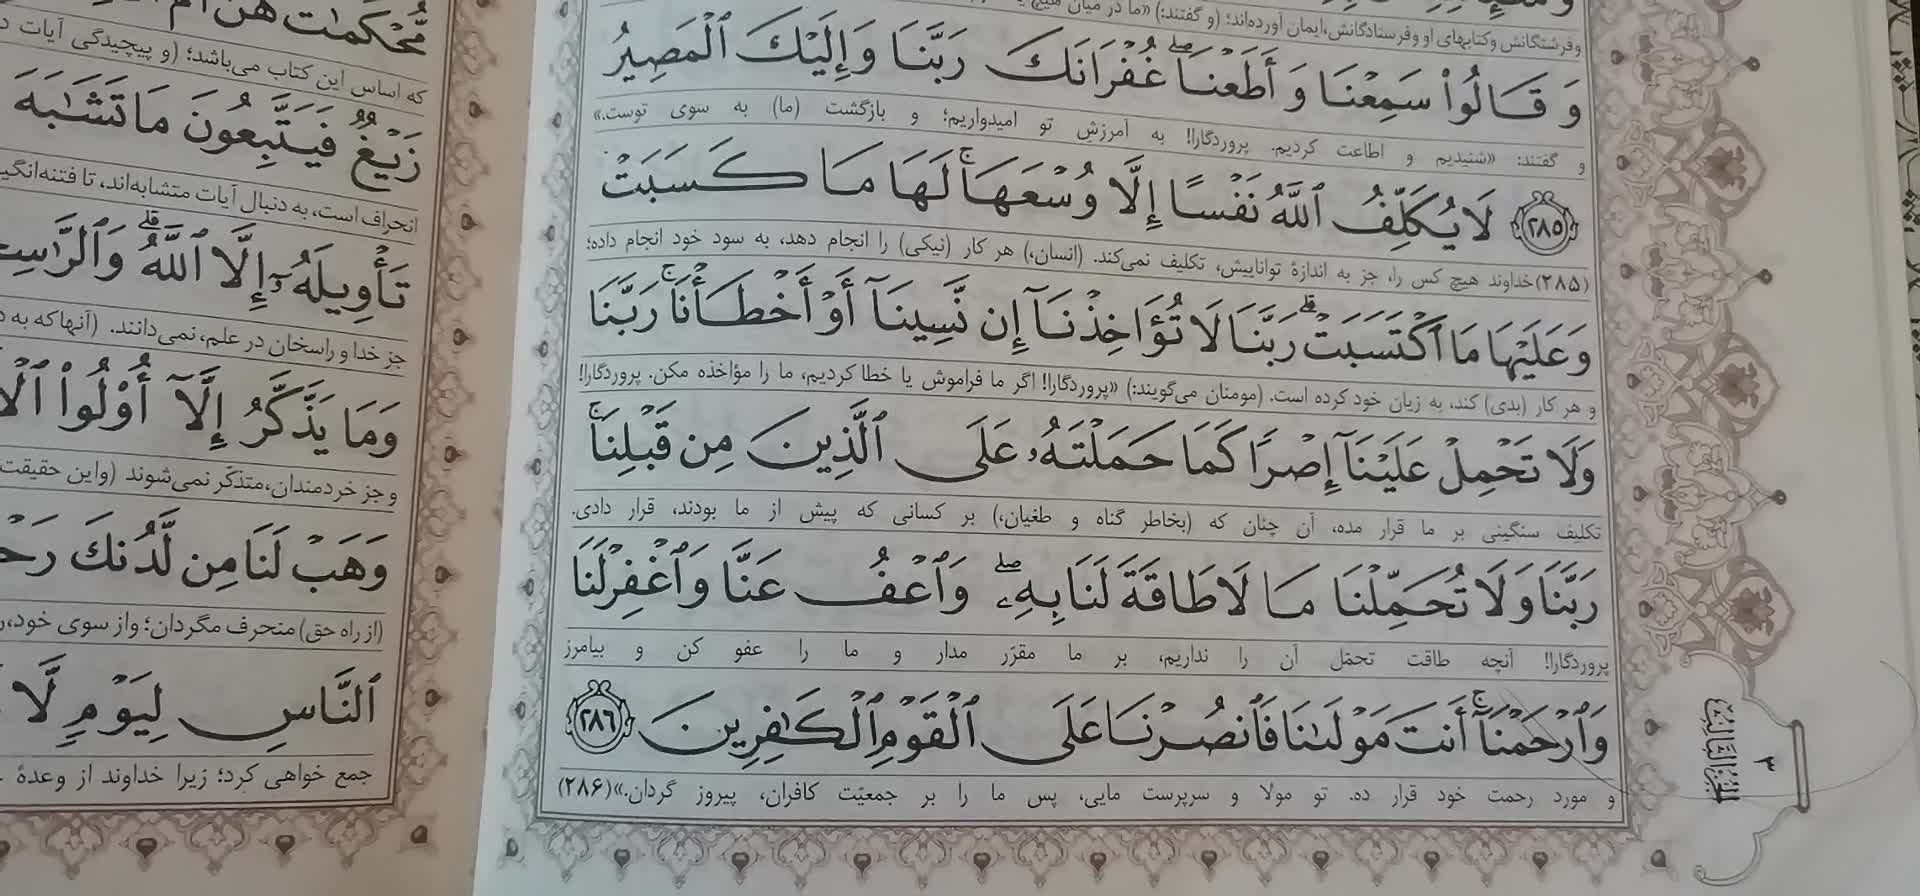 وفرشتگانش وکتابهای او وفرستادگانش، ایمان آورده‌اند؛ (و گفتند:) «ما در میان هیچ یک
وَ قَالُوا۟ سَمِعْنَا وَ أَطَعْنَاۖ غُفْرَانَكَ رَبَّنَا وَإِلَيْكَ ٱلْمَصِيرُ
و گفتند: «شنیدیم و اطاعت کردیم. پروردگارا! به آمرزش تو امیدواریم؛ و بازگشت (ما) به سوی توست.»
﴿٢٨٥﴾ لَا يُكَلِّفُ ٱللَّهُ نَفْسًا إِلَّا وُسْعَهَاۚ لَهَا مَا كَسَبَتْ
(۲۸۵)خداوند هیچ کس را، جز به اندازهٔ تواناییش، تکلیف نمی‌کند. (انسان،) هر کار (نیکی) را انجام دهد، به سود خود انجام داده؛
وَعَلَيْهَا مَا ٱكْتَسَبَتْۗ رَبَّنَا لَا تُؤَاخِذْنَآ إِن نَّسِينَآ أَوْ أَخْطَأْنَاۚ رَبَّنَا
و هر کار (بدی) کند، به زیان خود کرده است. (مومنان می‌گویند:) «پروردگارا! اگر ما فراموش یا خطا کردیم، ما را مؤاخذه مکن. پروردگارا!
وَلَا تَحْمِلْ عَلَيْنَآ إِصْرًا كَمَا حَمَلْتَهُۥ عَلَى ٱلَّذِينَ مِن قَبْلِنَاۚ
تکلیف سنگینی بر ما قرار مده، آن چنان که (بخاطر گناه و طغیان،) بر کسانی که پیش از ما بودند، قرار دادی.
رَبَّنَا وَلَا تُحَمِّلْنَا مَا لَا طَاقَةَ لَنَا بِهِۦۖ وَٱعْفُ عَنَّا وَٱغْفِرْ لَنَا
پروردگارا! آنچه طاقت تحمّل آن را نداریم، بر ما مقرّر مدار و ما را عفو کن و بیامرز
وَٱرْحَمْنَآۚ أَنتَ مَوْلَىٰنَا فَٱنصُرْنَا عَلَى ٱلْقَوْمِ ٱلْكَـٰفِرِينَ ﴿٢٨٦﴾
و مورد رحمت خود قرار ده. تو مولا و سرپرست مایی، پس ما را بر جمعیّت کافران، پیروز گردان.»(۲۸۶)
٣
الجزء الثالث
مُّحْكَمَٰتٌ هُنَّ أُمُّ
که اساس این کتاب می‌باشد؛ (و پیچیدگی آیات
زَيْغٌ فَيَتَّبِعُونَ مَا تَشَٰبَهَ
انحراف است، به دنبال آیات متشابه‌اند، تا فتنه‌انگی
تَأْوِيلَهُۥٓ إِلَّا ٱللَّهُۗ وَٱلرَّٰسِ
جز خدا و راسخان در علم، نمی‌دانند. (آنها که به د
وَمَا يَذَّكَّرُ إِلَّآ أُو۟لُوا۟ ٱلْأ
و جز خردمندان، متذکّر نمی‌شوند (واین حقیقت
وَهَبْ لَنَا مِن لَّدُنكَ رَحْ
(از راه حق) منحرف مگردان؛ واز سوی خود، ر
ٱلنَّاسِ لِيَوْمٍ لَّا
جمع خواهی کرد؛ زیرا خداوند از وعدهٔ